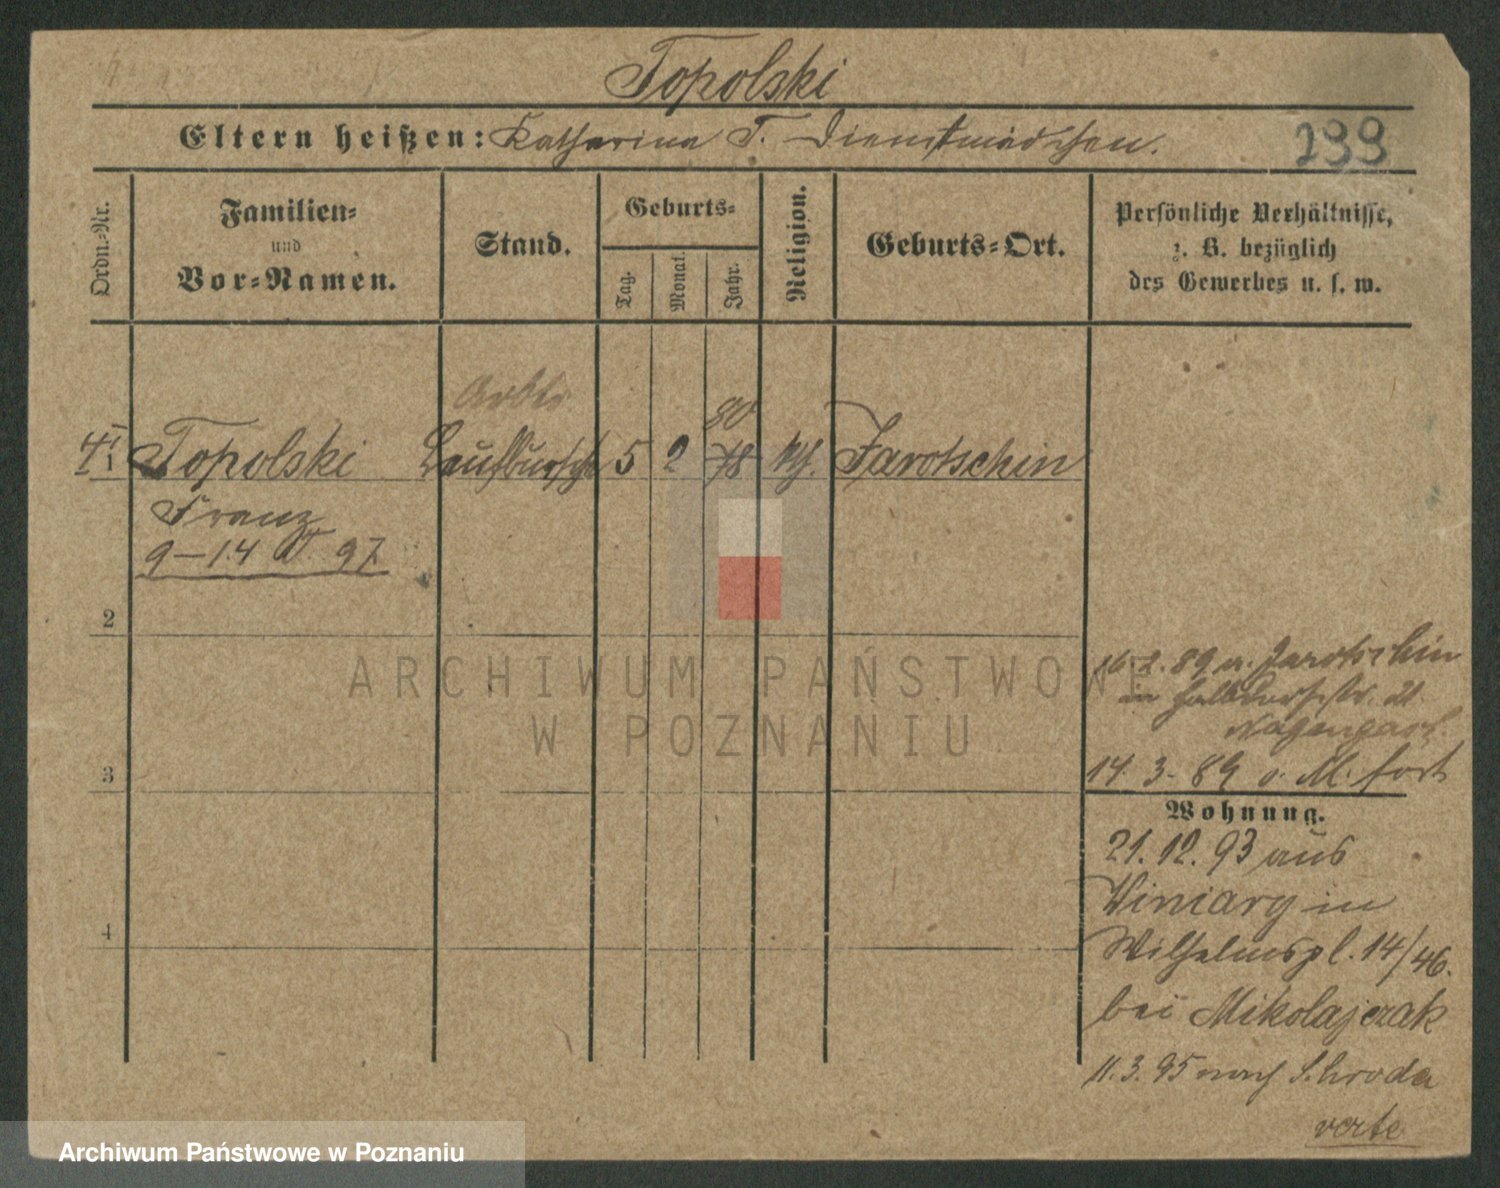 Topolski
Eltern heißen: Katharina T. Dienstmädchen.
299
Ordn.-Nr.
Familien-
und
Vor-Namen.
Stand.
Geburts-
Tag.
Monat.
Jahr.
Religion.
Geburts-Ort.
Persönliche Verhältnisse,
z. B. bezüglich
des Gewerbes u. s. w.
Arbtr
80
1 Topolski Laufbursche 5 2 78 kth. Jarotschin
Franz
9–1.4 97
2
3
4
16.2.89 a. Jarotschin
in Halbdorfstr. 21
14.3.89 v. M. fort
Wohnung.
21.12.93 aus
Winiary in
Wilhelmspl. 14/46.
bei Mikolajczak
11.3.95 nach Schroda
verte
ARCHIWUM PAŃSTWOWE
W POZNANIU
Archiwum Państwowe w Poznaniu